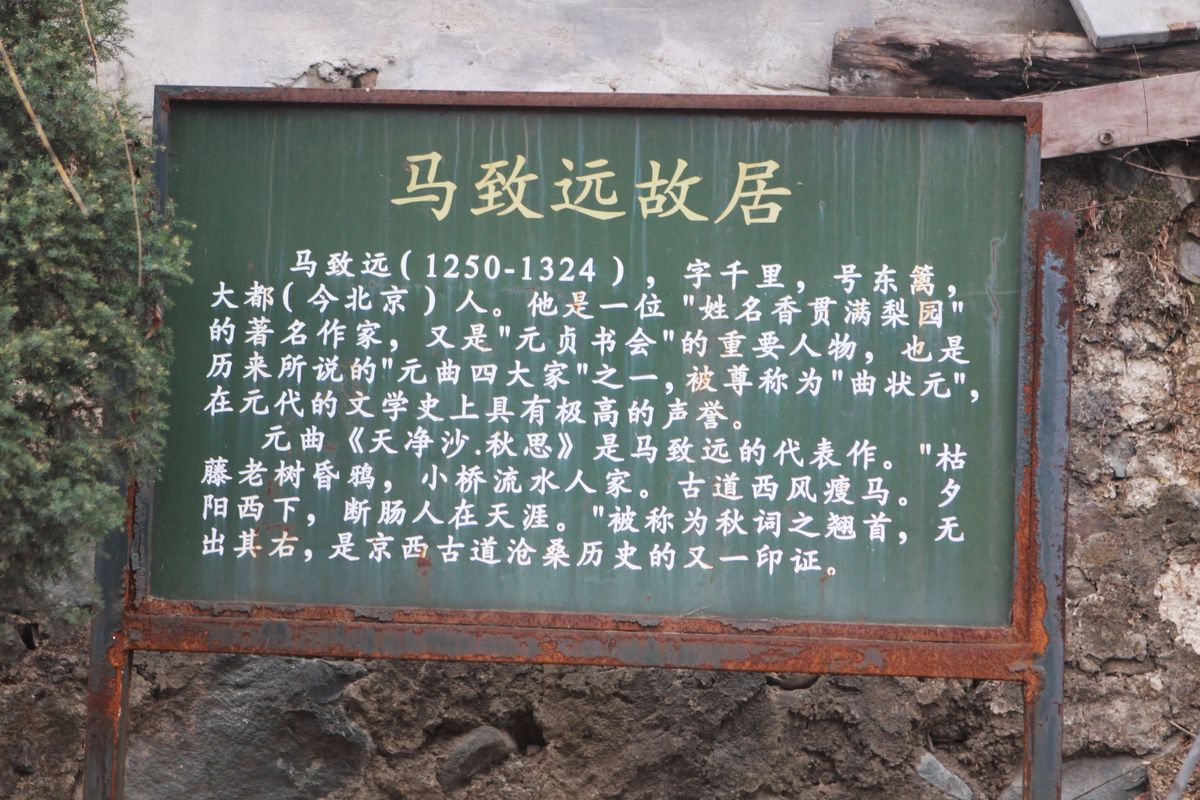 马致远故居
马致远(1250-1324),字千里,号东篱,
大都(今北京)人。他是一位"姓名香贯满梨园"
的著名作家,又是"元贞书会"的重要人物,也是
历来所说的"元曲四大家"之一,被尊称为"曲状元",
在元代的文学史上具有极高的声誉。
元曲《天净沙.秋思》是马致远的代表作。"枯
藤老树昏鸦,小桥流水人家。古道西风瘦马。夕
阳西下,断肠人在天涯。"被称为秋词之翘首,无
出其右,是京西古道沧桑历史的又一印证。